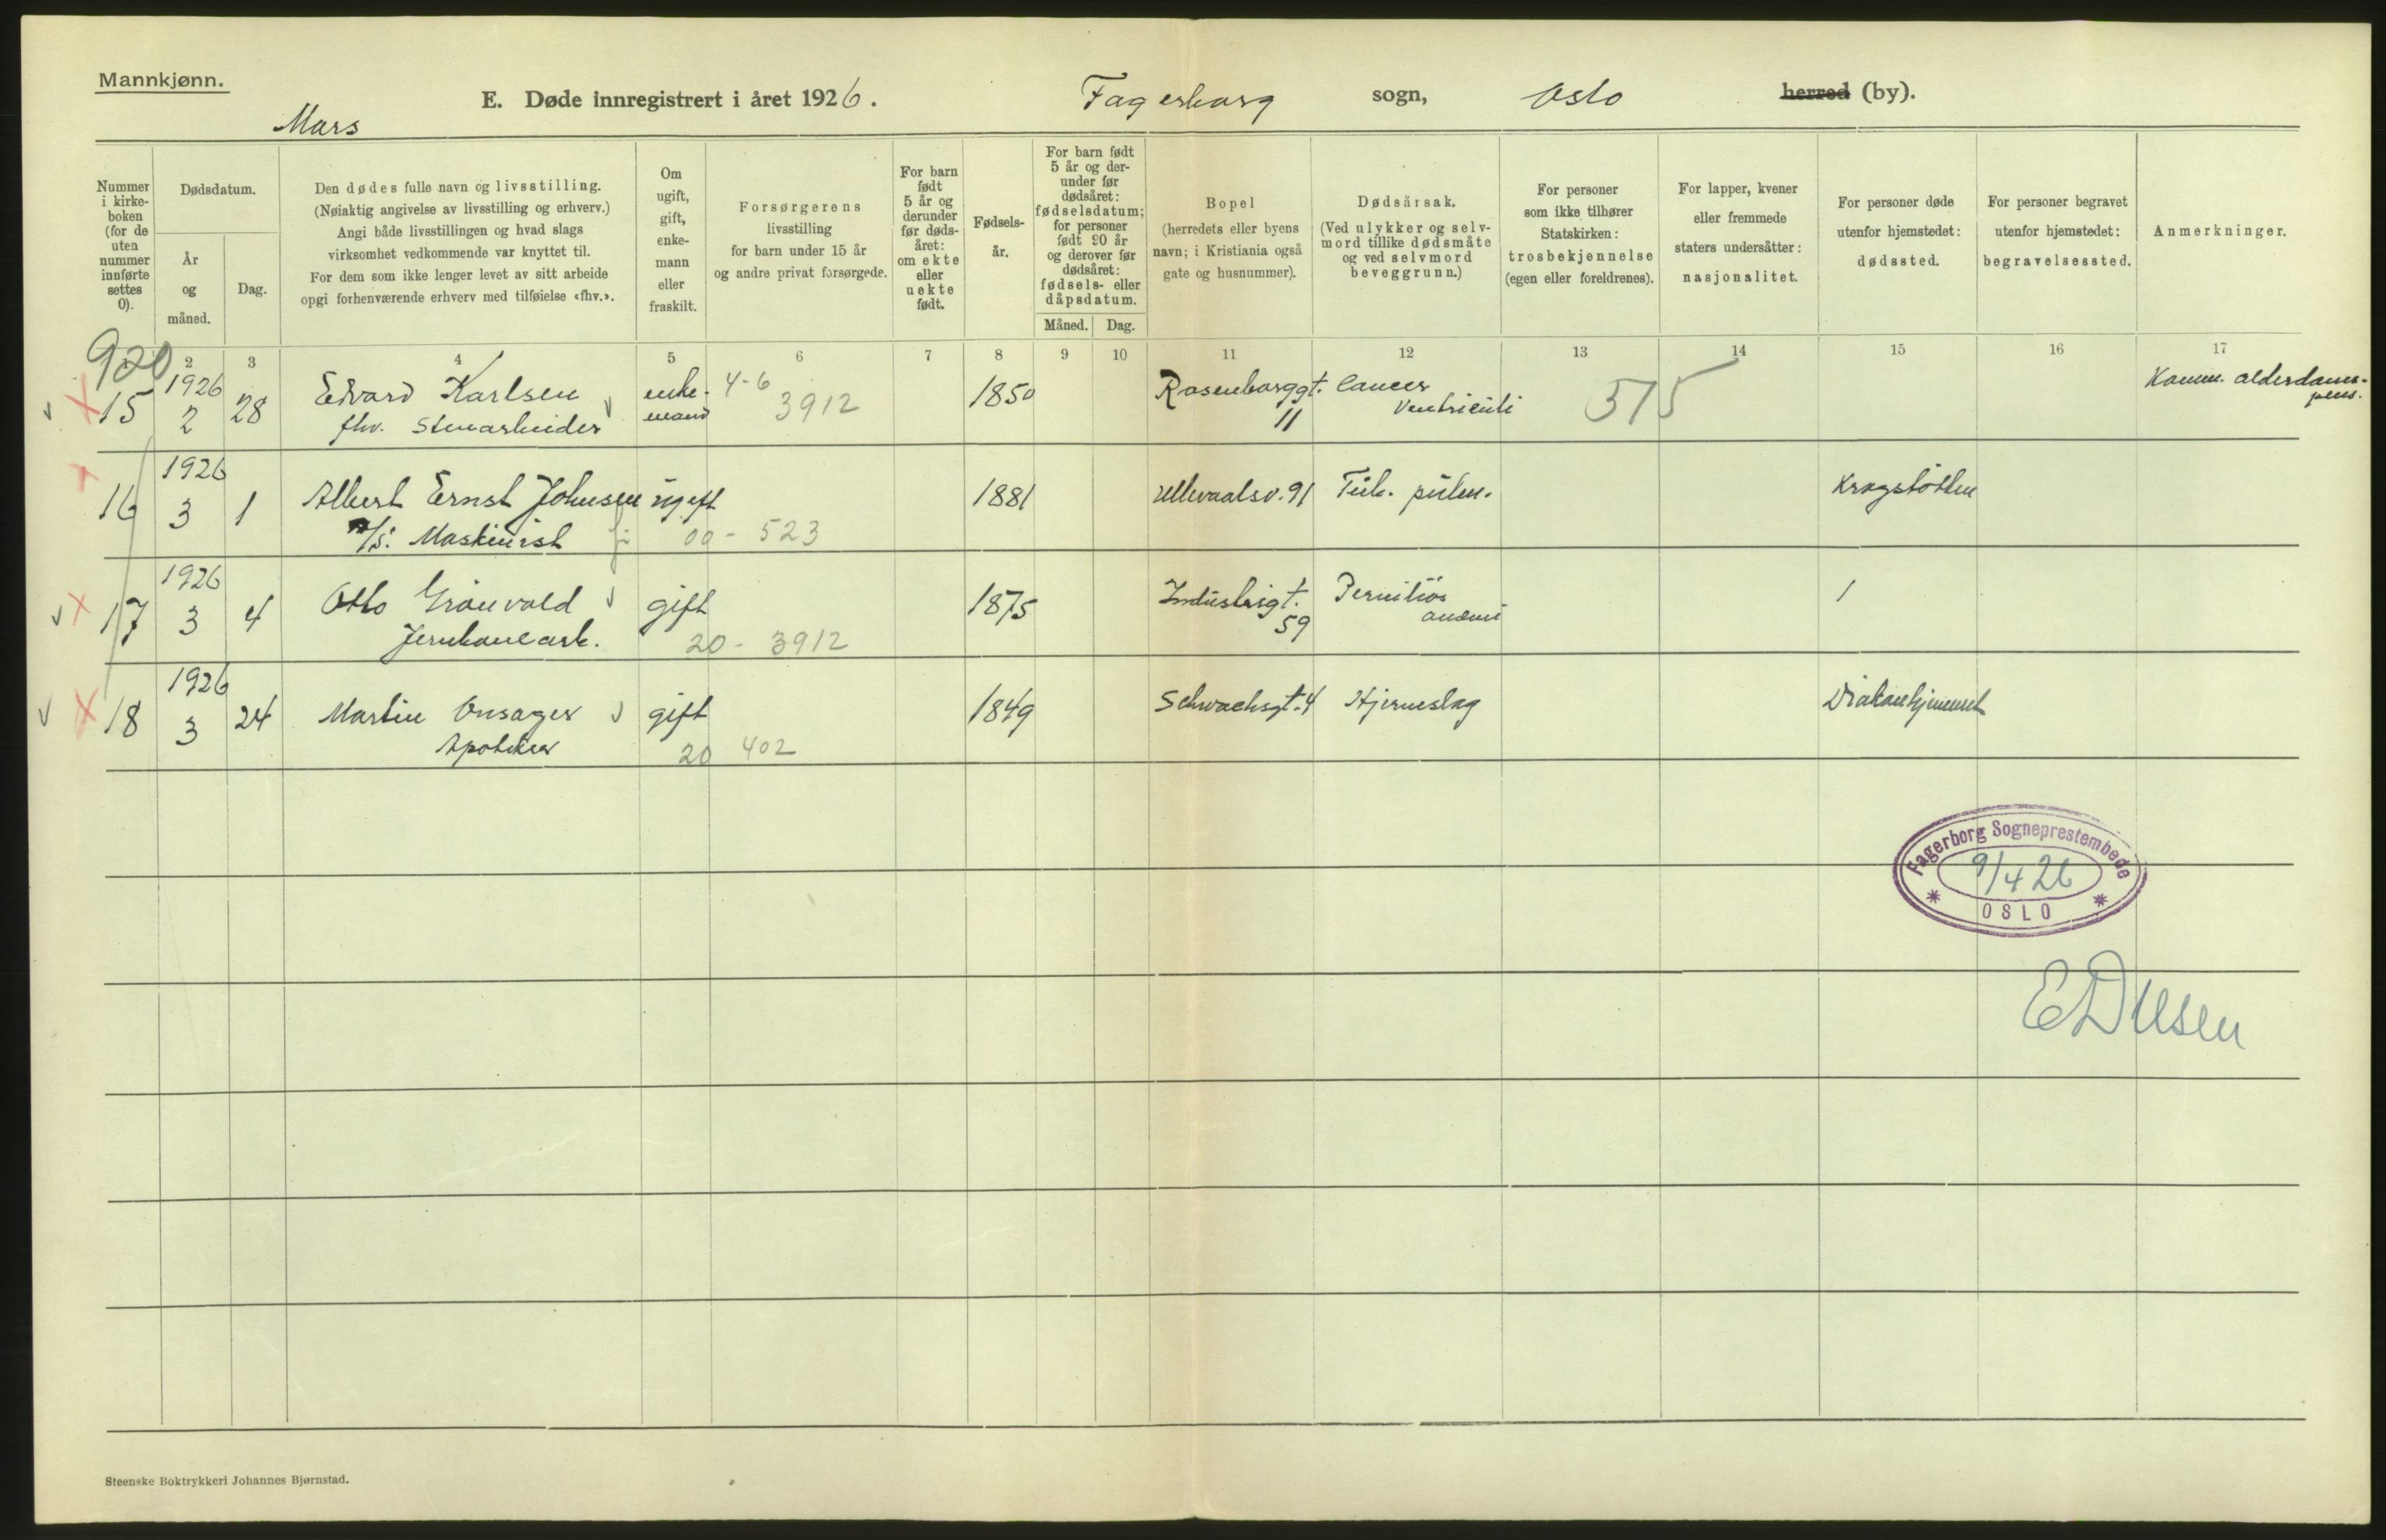 Mannkjønn.
E. Døde innregistrert i året 1926. Fagerborg sogn, Oslo herred (by).
Mars
Nummer i kirkeboken (for de uten nummer innførte settes 0).
Dødsdatum.
År og måned.
Dag.
Den dødes fulle navn og livsstilling.
(Nøiaktig angivelse av livsstilling og erhverv.)
Angi både livsstillingen og hvad slags
virksomhet vedkommende var knyttet til.
For dem som ikke lenger levet av sitt arbeide
opgi forhenværende erhverv med tilføielse «fhv.».
Om ugift, gift, enkemann eller fraskilt.
Forsørgerens
livsstilling
for barn under 15 år
og andre privat forsørgede.
For barn født 5 år og derunder før dødsåret: om ekte eller uekte født.
Fødselsår.
For barn født 5 år og derunder før dødsåret: fødselsdatum; for personer født 90 år og derover før dødsåret: fødsels- eller dåpsdatum.
Måned. Dag.
Bopel
(herredets eller byens
navn; i Kristiania også
gate og husnummer).
Dødsårsak.
(Ved ulykker og selvmord tillike dødsmåte
og ved selvmord
beveggrunn.)
For personer
som ikke tilhører
Statskirken:
trosbekjennelse
(egen eller foreldrenes).
For lapper, kvener
eller fremmede
staters undersåtter:
nasjonalitet.
For personer døde
utenfor hjemstedet:
dødssted.
For personer begravet
utenfor hjemstedet:
begravelsessted.
Anmerkninger.
2 3 4 5 6 7 8 9 10 11 12 13 14 15 16 17
920
15 1926 2 28 Edvard Karlsen enkemand 4-6 3912 1850 Rosenborggt. 11 Cancer ventriculi 515 Komm. alderdomspens.
fhv. Stenarbeider
16 1926 3 1 Albert Ernst Johnsen ugift 1881 Ullevaalsv. 91 Tub. pulm. Kragstøtten
Maskinist 00 - 523
17 1926 3 4 Otto Grönvold gift 1875 Industrigt. 59 Perniciös anæmi
Jernbanearb. 20 - 3912
18 1926 3 24 Martin Onsager gift 1849 Schwachsgt. 4 Hjerneslag Diakonhjemmet
Apoteker 20 402
Fagerborg Sogneprestembede
9/4 26
OSLO
Steenske Boktrykkeri Johannes Bjørnstad.